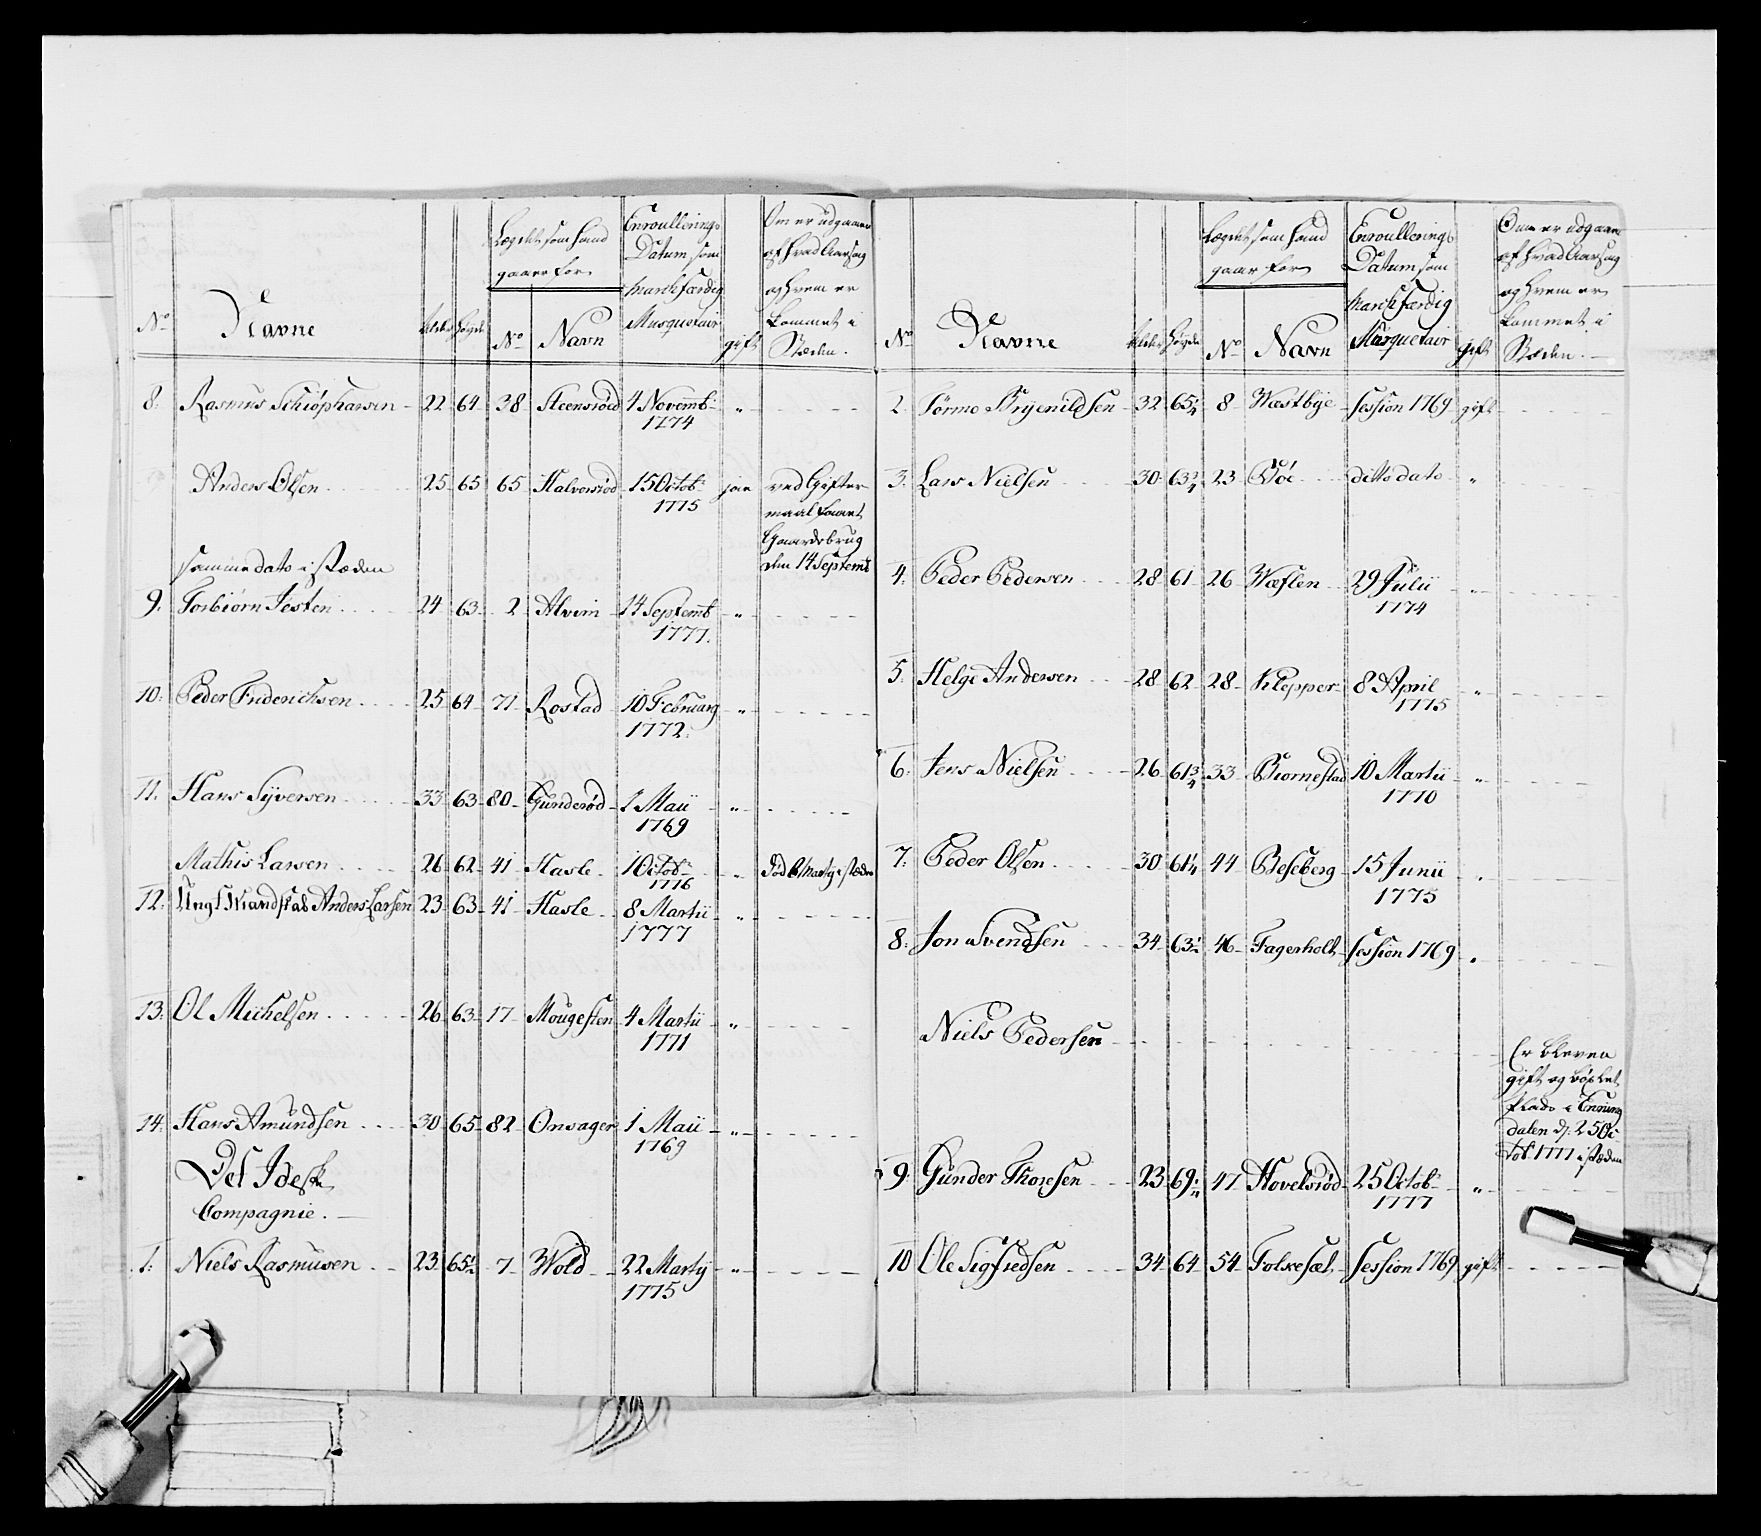 No Navne Alder Høyde Lægdet som hand gaaer for No Navn Enroullerings Datum som marchfærdig Musquetair gift Om er udgaaen af hvad Aarsag og hvem er kommet i Stæden.
8. Rasmus Schiøphansen 22 64 38 Steensröed 4 Novemb: 1774 "
Anders Olsen 25 65 65 Halvorsröd 15 Octob: 1775 jae ved Gifter
maal faaet
Gaardebrug
den 14 Septemb
samme dato i stæden
9. Torbiørn Jesten 24 63 2 Alvim 14 Septemb 1777. "
10. Peder Friderichsen 25 64 71 Rostad 10 Februarij 1772. "
11. Hans Syversen 33 63 80 Gunderöd 1 Maii 1769 "
Mathis Larsen 26 62 41 Hasle 1 Octob: 1776 " Död 8 Martij i stæden
12. Ungt Mandskab Anders Larsen 23 63 41 Hasle 8 Martii 1777 "
13. Ol Michelsen 26 63 17 Mougesten 4 Martii 1771 "
14. Hans Amundsen 30 65 82 Onsager 1 Maii 1769 "
Det Idesk
Compagnie.
1. Niels Rasmusen 23 65½ 7 Wold 22 Martij 1775 "
No Navne Alder Høyde Lægdet som hand gaar for No Navn Enroullerings Datum som marchfærdig Musquetair gift Om er udgaaen af hvad Aarsag og hvem er kommet i Stæden.
2. Törmo Brÿenildsen 32 65¼ 8 Wæstbye Session 1769 gift
3. Lars Nielsen 30 63¾ 23 Döe ditto dato "
4. Peder Pedersen 28 61 26 Wæflen 29 Julii 1774 "
5. Helge Andersen 28 62 28 Klepper 8 April 1775 "
6. Jens Nielsen 26 61¾ 33 Biornestad 10 Martii 1770 "
7. Peder Olsen 30 61¼ 44 Beseberg 15 Junii 1775 "
8. Jon Svendsen 34 63½ 46 Fagerholt Session 1769 "
Niels Pedersen Er bleven
gift og böxlet
Plads i Enning
dalen d: 25 Oc
tob: 1777 i stæden
9. Gunder Thoresen 23 69½ 47 Hovelsröd 25 Octob: 1777 "
10 Ole Sigfredsen 34 64 54 Folkesæl Session 1769 gift